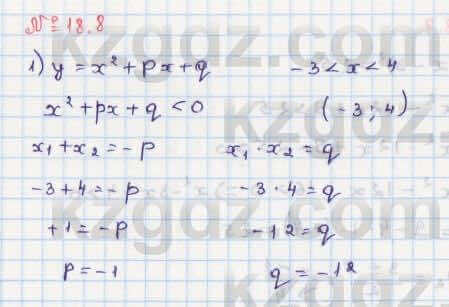 № 18.8
1) y = x² + px + q    -3 < x < 4
x² + px + q < 0    (-3; 4)
x₁ + x₂ = -p    x₁ · x₂ = q
-3 + 4 = -p    -3 · 4 = q
+1 = -p    -12 = q
p = -1    q = -12
kzgdz.com
kzgdz.com
kzgdz.com
kzgdz.com